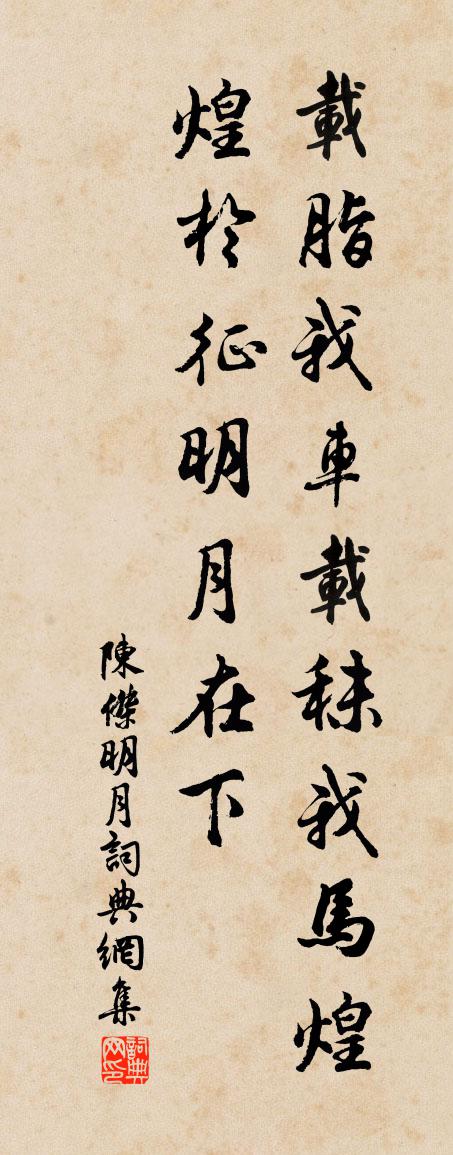 載脂我車載秣我馬煌
煌於征明月在下
陳傑明月詞典網集
詞典网印